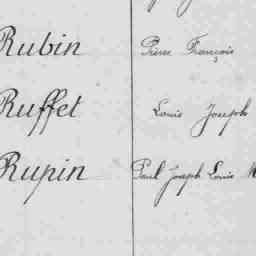 Rubin Pierre François
Ruffet Louis Joseph
Rupin Paul Joseph Louis